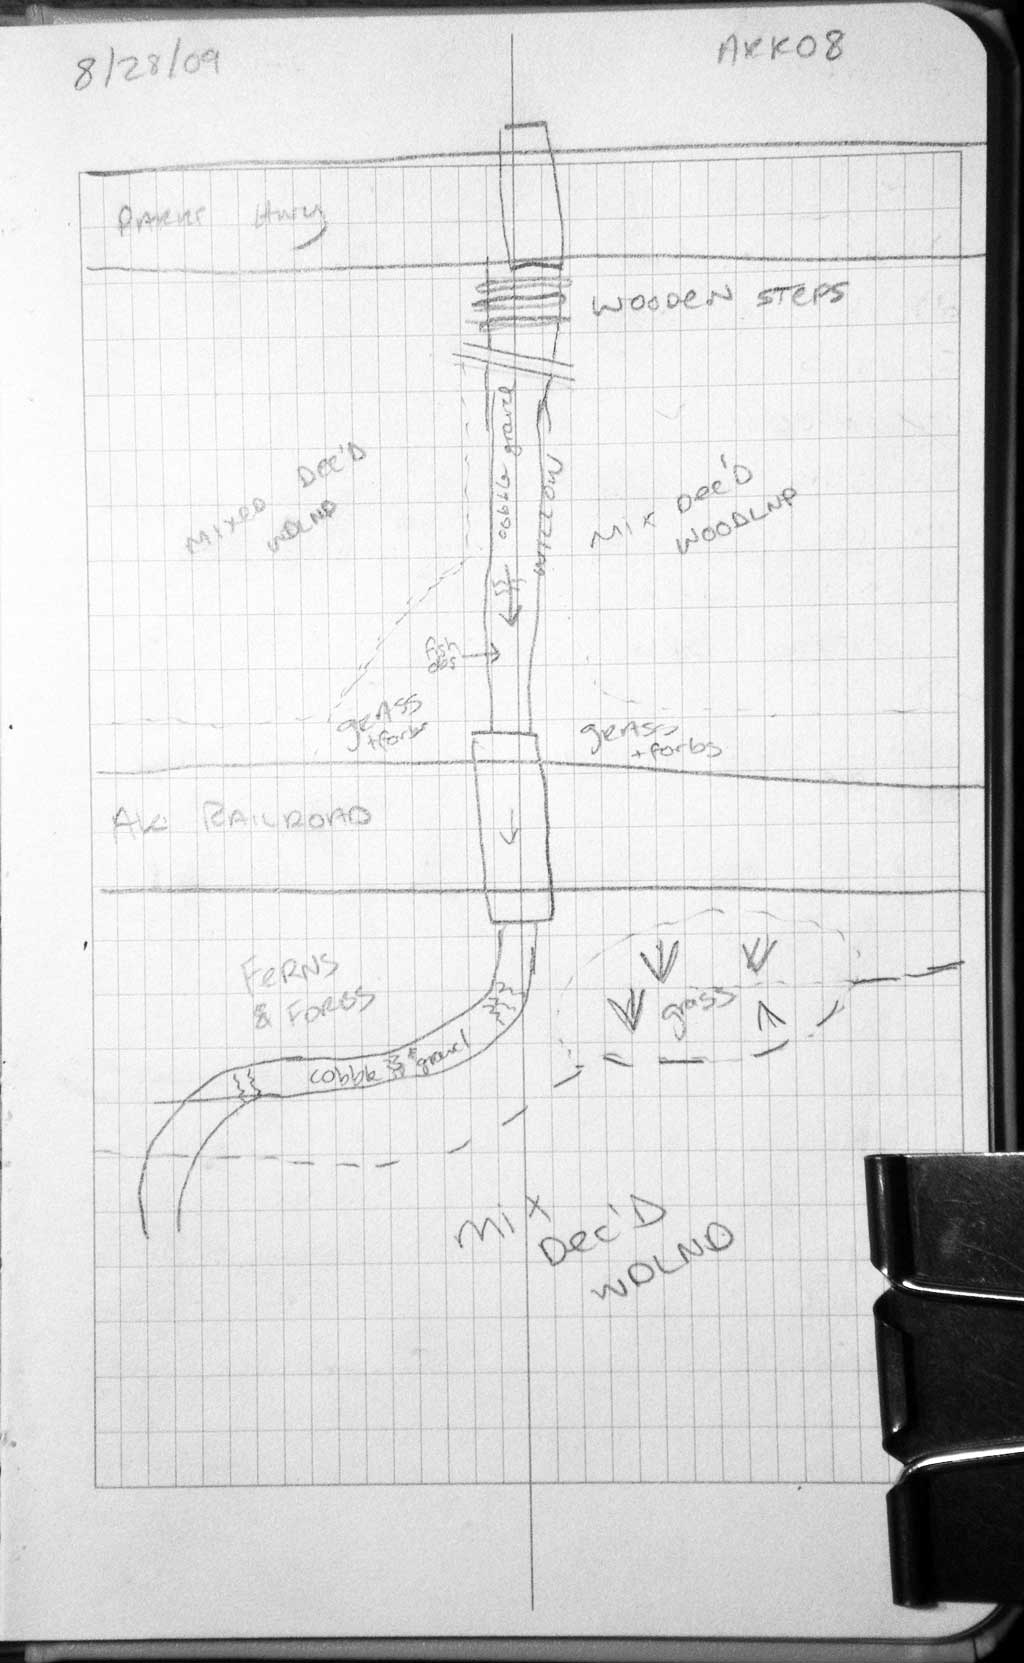 8/28/09
ARK08
PARKS Hwy
WOODEN STEPS
cobble gravel
WILLOW
MIXED DEC'D
WDLND
MIX DEC'D
WOODLND
fish
obs
grASS
+forbs
grASS
+forbs
AK RAILROAD
FERNS
& FORBS
grass
cobble & gravel
MIX
DEC'D
WDLND